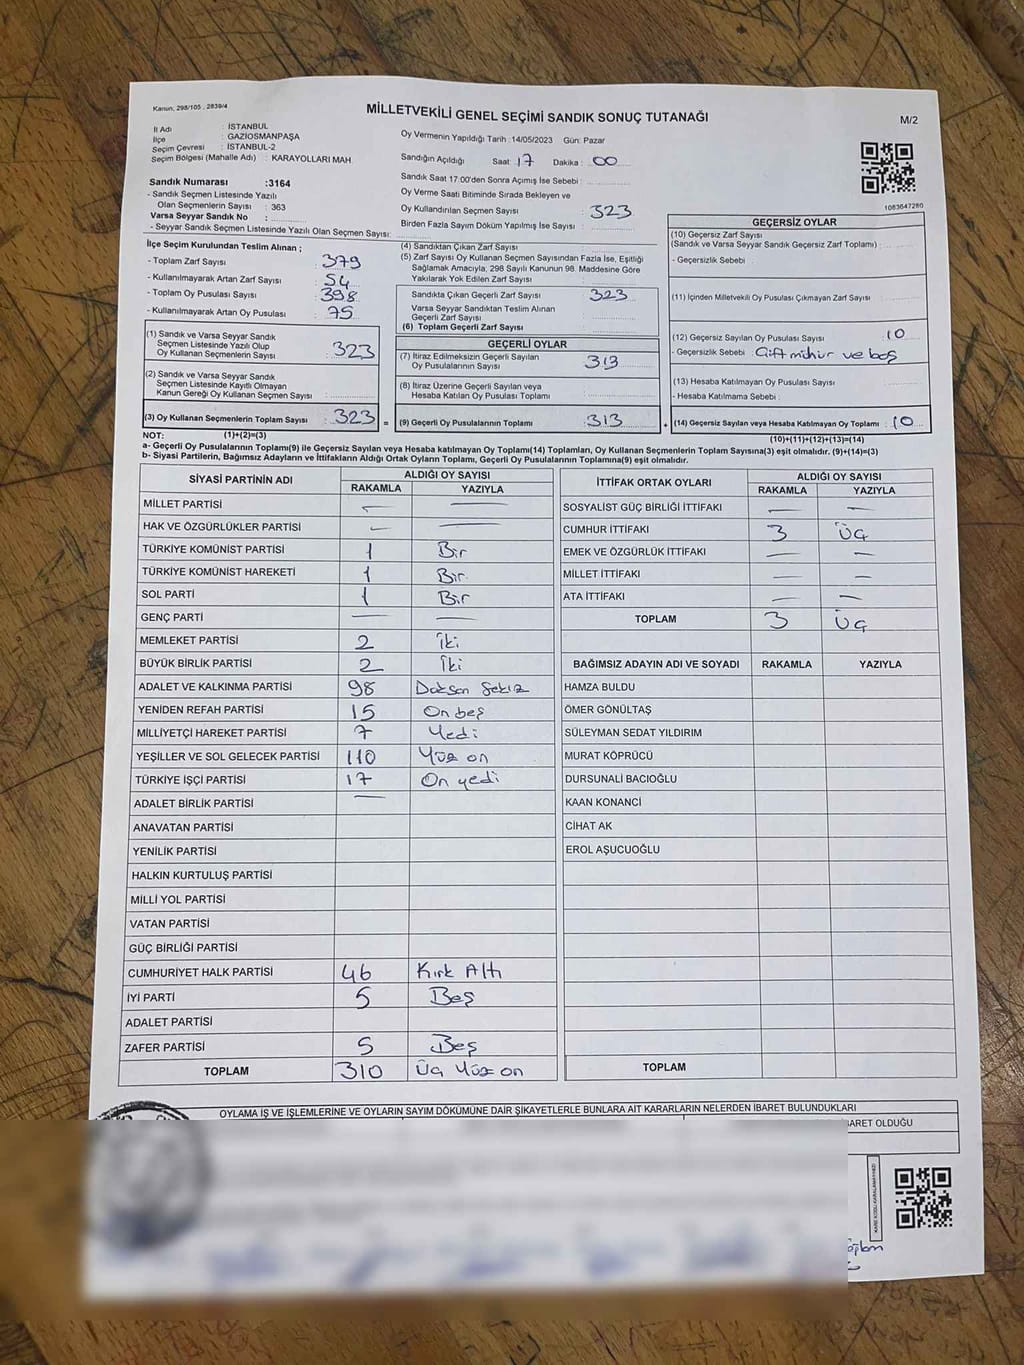 Kanun, 298/105 , 2839/4
MİLLETVEKİLİ GENEL SEÇİMİ SANDIK SONUÇ TUTANAĞI
M/2
İl Adı : İSTANBUL
İlçe : GAZİOSMANPAŞA
Seçim Çevresi : İSTANBUL-2
Seçim Bölgesi (Mahalle Adı) : KARAYOLLARI MAH.
Oy Vermenin Yapıldığı Tarih : 14/05/2023 Gün: Pazar
Sandığın Açıldığı Saat: 17 Dakika : 00
Sandık Saat 17:00'den Sonra Açımış İse Sebebi :
Oy Verme Saati Bitiminde Sırada Bekleyen ve
Oy Kullandırılan Seçmen Sayısı : 323
Birden Fazla Sayım Döküm Yapılmış İse Sayısı :
1083647280
Sandık Numarası :3164
- Sandık Seçmen Listesinde Yazılı
Olan Seçmenlerin Sayısı : 363
Varsa Seyyar Sandık No :
- Seyyar Sandık Seçmen Listesinde Yazılı Olan Seçmen Sayısı:
İlçe Seçim Kurulundan Teslim Alınan ;
- Toplam Zarf Sayısı : 379
- Kullanılmayarak Artan Zarf Sayısı : 54
- Toplam Oy Pusulası Sayısı : 398
- Kullanılmayarak Artan Oy Pusulası : 75
(1) Sandık ve Varsa Seyyar Sandık
Seçmen Listesinde Yazılı Olup
Oy Kullanan Seçmenlerin Sayısı : 323
(2) Sandık ve Varsa Seyyar Sandık
Seçmen Listesinde Kayıtlı Olmayan
Kanun Gereği Oy Kullanan Seçmen Sayısı :
(3) Oy Kullanan Seçmenlerin Toplam Sayısı : 323 =
(4) Sandıktan Çıkan Zarf Sayısı :
(5) Zarf Sayısı Oy Kullanan Seçmen Sayısından Fazla İse, Eşitliği
Sağlamak Amacıyla, 298 Sayılı Kanunun 98. Maddesine Göre
Yakılarak Yok Edilen Zarf Sayısı :
Sandıkta Çıkan Geçerli Zarf Sayısı : 323
Varsa Seyyar Sandıktan Teslim Alınan
Geçerli Zarf Sayısı :
(6) Toplam Geçerli Zarf Sayısı :
GEÇERLİ OYLAR
(7) İtiraz Edilmeksizin Geçerli Sayılan
Oy Pusulalarının Sayısı : 313
(8) İtiraz Üzerine Geçerli Sayılan veya
Hesaba Katılan Oy Pusulası Toplamı :
(9) Geçerli Oy Pusulalarının Toplamı : 313 +
GEÇERSİZ OYLAR
(10) Geçersiz Zarf Sayısı
(Sandık ve Varsa Seyyar Sandık Geçersiz Zarf Toplamı) :
- Geçersizlik Sebebi :
(11) İçinden Milletvekili Oy Pusulası Çıkmayan Zarf Sayısı :
(12) Geçersiz Sayılan Oy Pusulası Sayısı : 10
- Geçersizlik Sebebi : Çift mühür ve boş
(13) Hesaba Katılmayan Oy Pusulası Sayısı :
- Hesaba Katılmama Sebebi :
(14) Geçersiz Sayılan veya Hesaba Katılmayan Oy Toplamı : 10
NOT: (1)+(2)=(3) (10)+(11)+(12)+(13)=(14)
a- Geçerli Oy Pusulalarının Toplamı(9) ile Geçersiz Sayılan veya Hesaba katılmayan Oy Toplamı(14) Toplamları, Oy Kullanan Seçmenlerin Toplam Sayısına(3) eşit olmalıdır. (9)+(14)=(3)
b- Siyasi Partilerin, Bağımsız Adayların ve İttifakların Aldığı Ortak Oyların Toplamı, Geçerli Oy Pusulalarının Toplamına(9) eşit olmalıdır.
SİYASİ PARTİNİN ADI ALDIĞI OY SAYISI
RAKAMLA YAZIYLA
MİLLET PARTİSİ — —
HAK VE ÖZGÜRLÜKLER PARTİSİ — —
TÜRKİYE KOMÜNİST PARTİSİ 1 Bir
TÜRKİYE KOMÜNİST HAREKETİ 1 Bir
SOL PARTİ 1 Bir
GENÇ PARTİ — —
MEMLEKET PARTİSİ 2 İki
BÜYÜK BİRLİK PARTİSİ 2 İki
ADALET VE KALKINMA PARTİSİ 98 Doksan Sekiz
YENİDEN REFAH PARTİSİ 15 On beş
MİLLİYETÇİ HAREKET PARTİSİ 7 Yedi
YEŞİLLER VE SOL GELECEK PARTİSİ 110 Yüz on
TÜRKİYE İŞÇİ PARTİSİ 17 On yedi
ADALET BİRLİK PARTİSİ —
ANAVATAN PARTİSİ
YENİLİK PARTİSİ
HALKIN KURTULUŞ PARTİSİ
MİLLİ YOL PARTİSİ
VATAN PARTİSİ
GÜÇ BİRLİĞİ PARTİSİ
CUMHURİYET HALK PARTİSİ 46 Kırk Altı
İYİ PARTİ 5 Beş
ADALET PARTİSİ
ZAFER PARTİSİ 5 Beş
TOPLAM 310 Üç Yüz on
İTTİFAK ORTAK OYLARI ALDIĞI OY SAYISI
RAKAMLA YAZIYLA
SOSYALİST GÜÇ BİRLİĞİ İTTİFAKI — —
CUMHUR İTTİFAKI 3 Üç
EMEK VE ÖZGÜRLÜK İTTİFAKI — —
MİLLET İTTİFAKI — —
ATA İTTİFAKI — —
TOPLAM 3 Üç
BAĞIMSIZ ADAYIN ADI VE SOYADI RAKAMLA YAZIYLA
HAMZA BULDU
ÖMER GÖNÜLTAŞ
SÜLEYMAN SEDAT YILDIRIM
MURAT KÖPRÜCÜ
DURSUNALİ BACIOĞLU
KAAN KONANCİ
CİHAT AK
EROL AŞUCUOĞLU
TOPLAM
OYLAMA İŞ VE İŞLEMLERİNE VE OYLARIN SAYIM DÖKÜMÜNE DAİR ŞİKAYETLERLE BUNLARA AİT KARARLARIN NELERDEN İBARET BULUNDUKLARI
BARET OLDUĞU